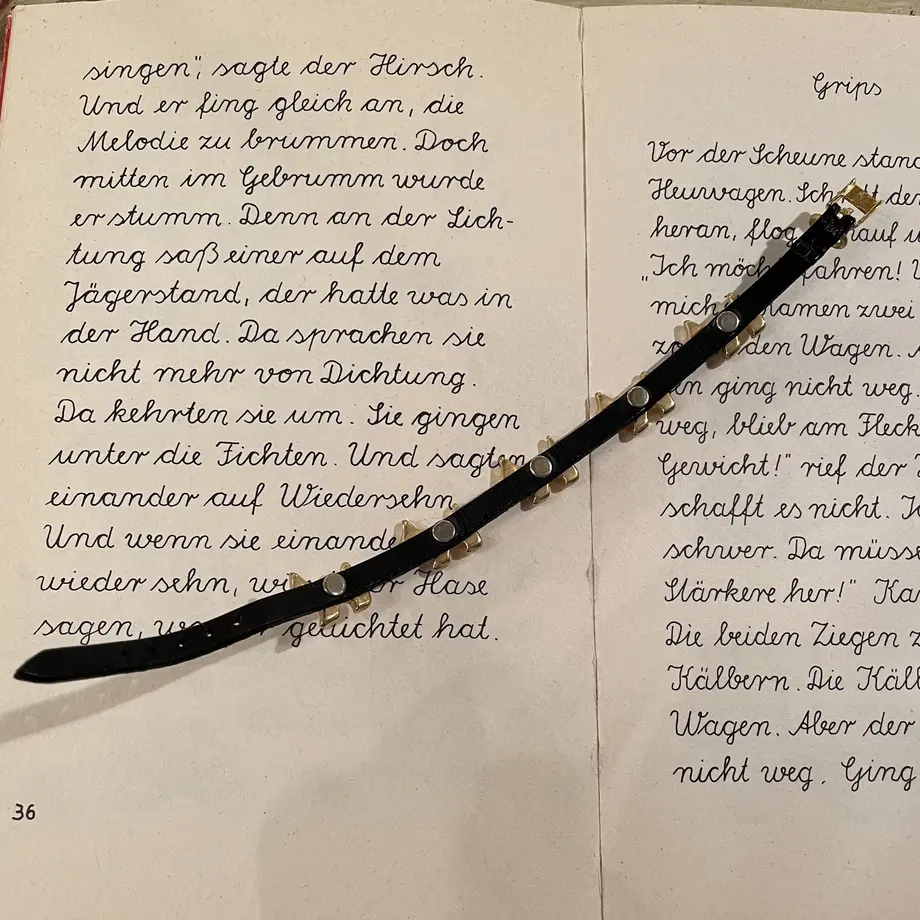 singen", sagte der Hirsch.
Und er fing gleich an, die
Melodie zu brummen. Doch
mitten im Gebrumm wurde
er stumm. Denn an der Lich-
tung saß einer auf dem
Jägerstand, der hatte was in
der Hand. Da sprachen sie
nicht mehr von Dichtung.
Da kehrten sie um. Sie gingen
unter die Fichten. Und sagten
einander auf Wiedersehn.
Und wenn sie einander
wieder sehn, Hase
sagen, gedichtet hat.
36
Grips
Vor der Scheune stand
Heuwagen. der
heran, flog
"Ich möch fahren!
mich kamen zwei
den Wagen.
ging nicht weg.
weg, blieb am Fleck
Gewicht!" rief der
schafft es nicht.
schwer. Da müsse
Stärkere her!"
Die beiden Ziegen
Kälbern. Die Käl
Wagen. Aber der
nicht weg. Ging